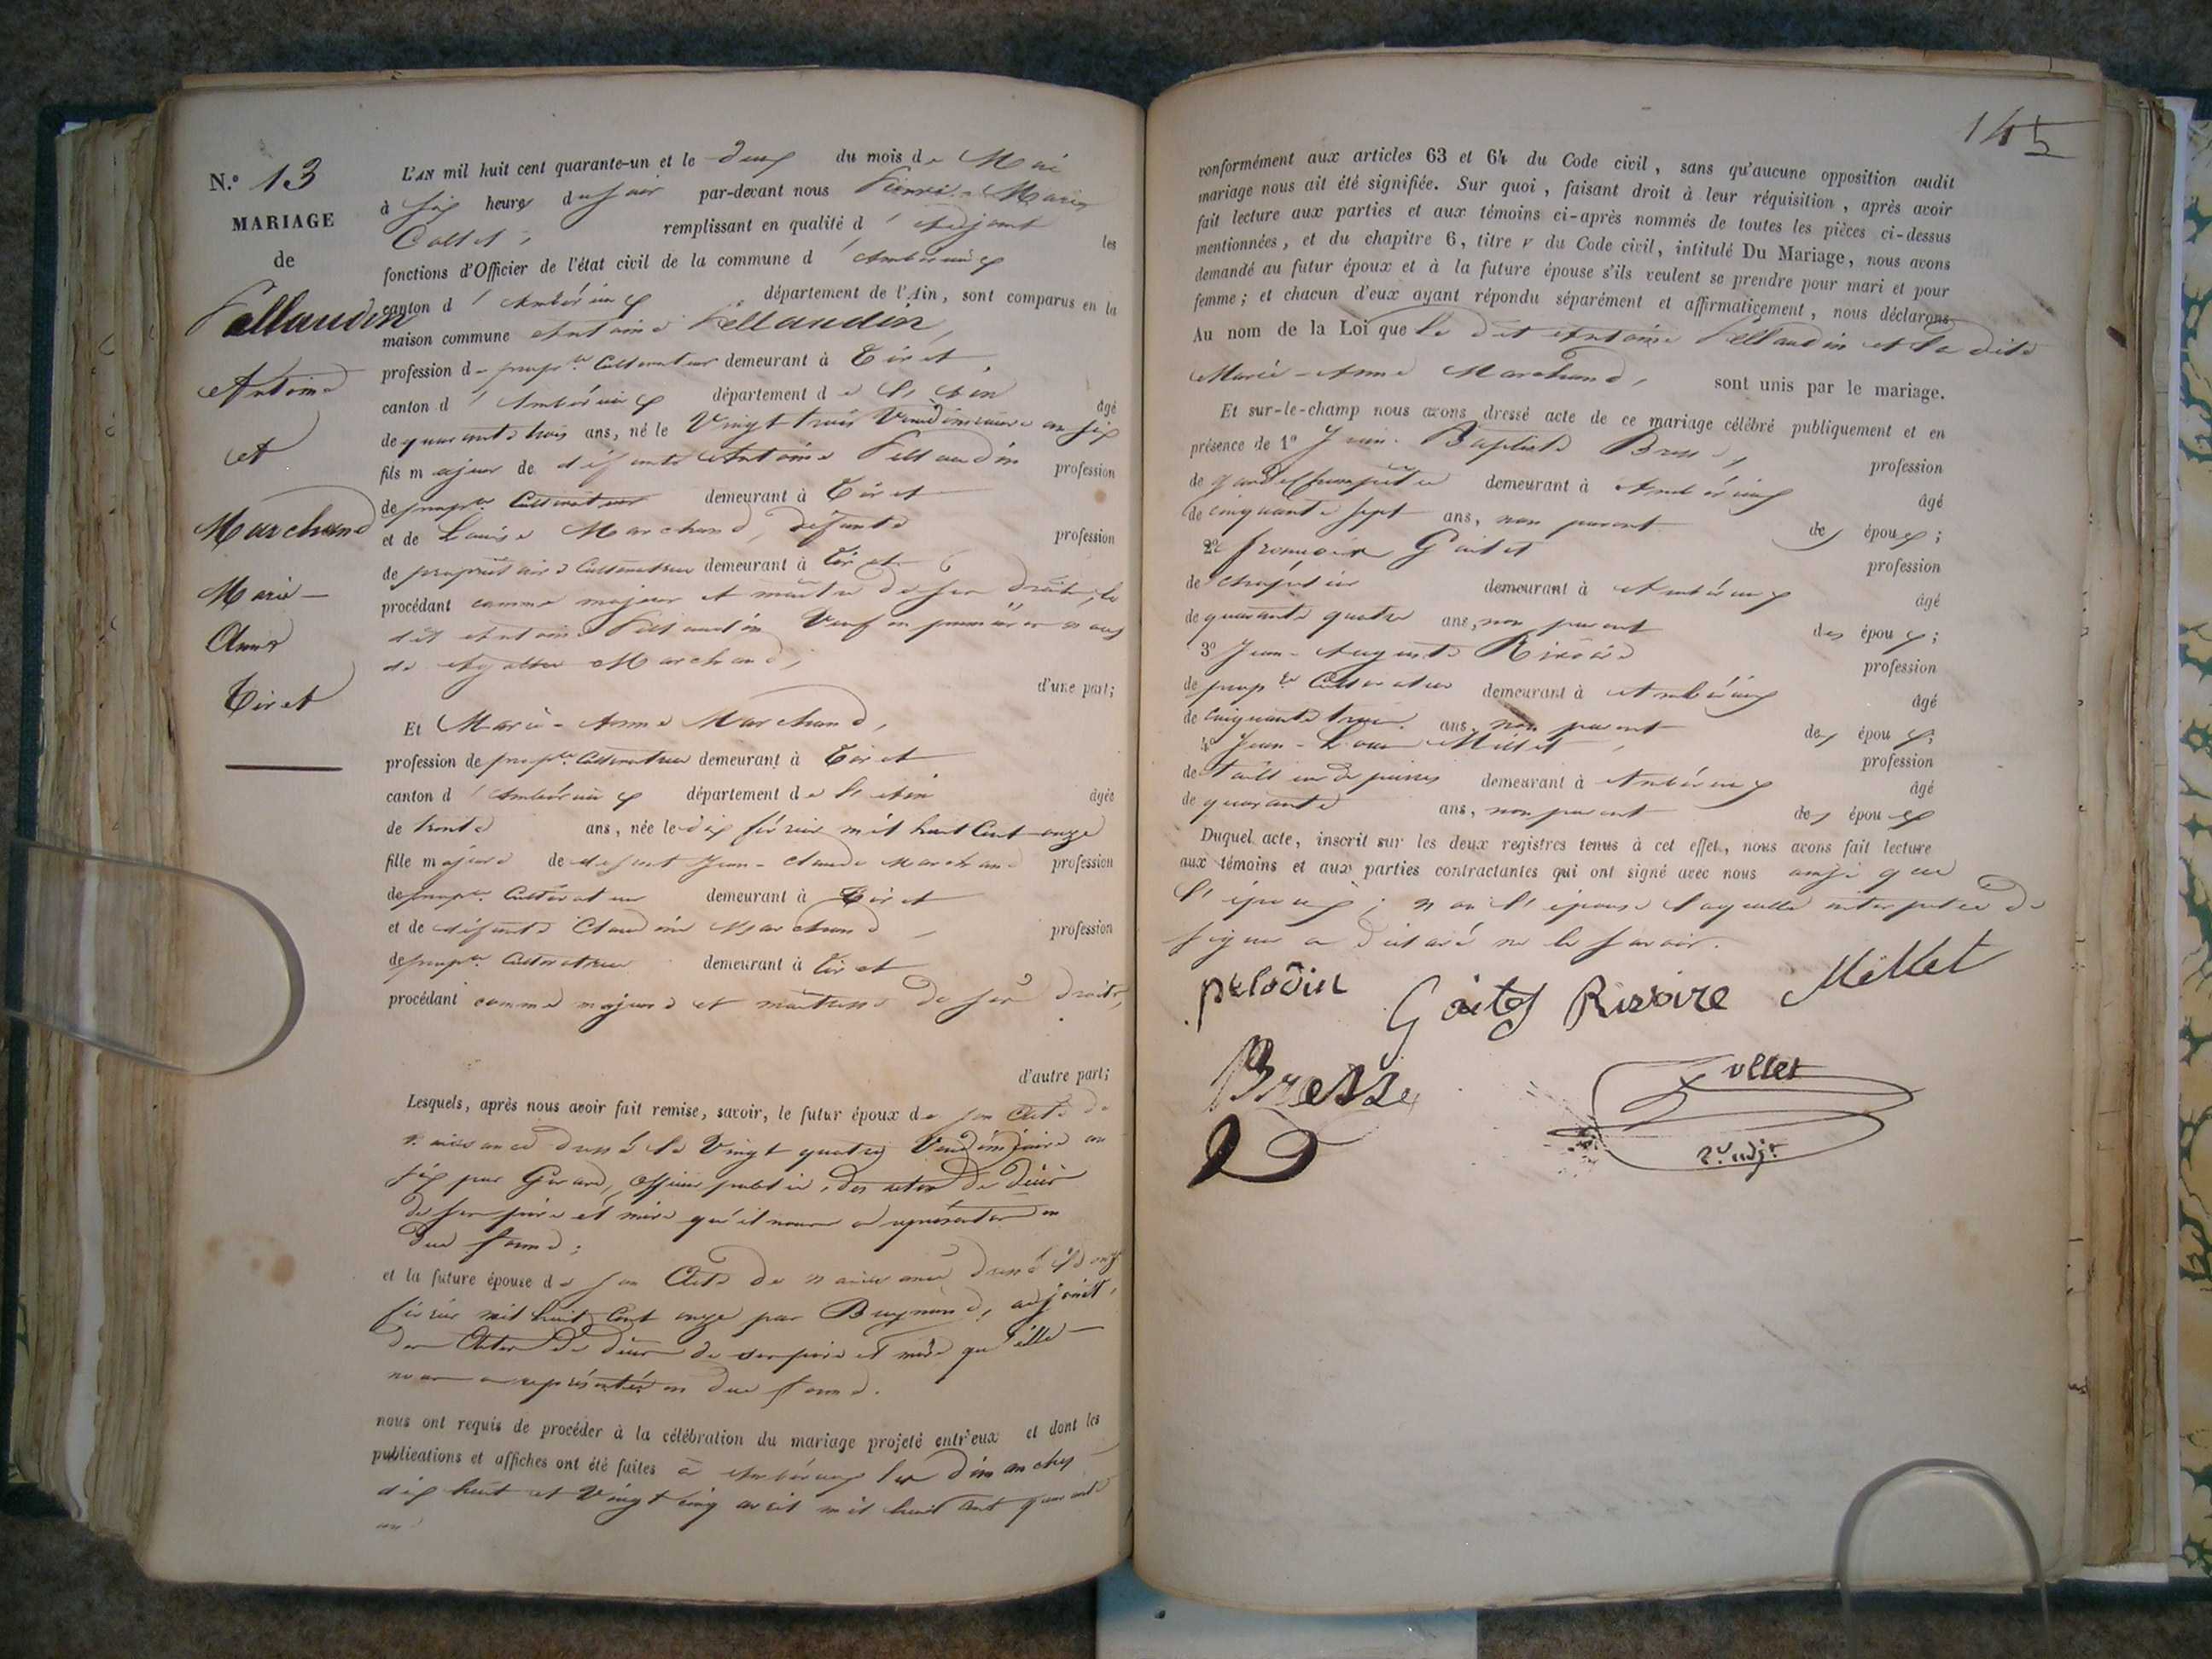 N.o 13
MARIAGE
de
Pellaudin
Antoine
et
Marchand
Marie-
Anne
Tiret
L'AN mil huit cent quarante-un et le deux du mois de Mai
à six heures du soir par-devant nous Pierre-Marie
remplissant en qualité d'adjoint les
fonctions d'Officier de l'état civil de la commune d'Ambérieux
canton d'Ambérieux département de l'Ain, sont comparus en la
maison commune Antoine Pellaudin,
profession de prop.re Cultivateur demeurant à Tiret
canton d'Ambérieux département de l'Ain âgé
de quarante trois ans, né le Vingt trois Vendémiaire an six
fils majeur de défunts Antoine Pellaudin profession
de prop.re Cultivateur demeurant à Tiret
et de Louise Marchand, défunte profession
de propriétaire Cultivatrice demeurant à Tiret
procédant comme majeur et maître de ses droits, le
dit Antoine Pellaudin Veuf en premières noces
de Marchand,
d'une part;
Et Marie-Anne Marchand,
profession de prop.re Cultivatrice demeurant à Tiret
canton d'Ambérieux département de l'Ain âgée
de trente ans, née le dix février mil huit Cent onze
fille majeure de défunt Jean-Claude Marchand profession
de prop.re Cultivateur demeurant à Tiret
et de défunte Claudine Marchand profession
de prop.re Cultivatrice demeurant à Tiret
procédant comme majeure et maîtresse de ses droits,
d'autre part;
Lesquels, après nous avoir fait remise, savoir, le futur époux de son Acte de
naissance dressé le Vingt quatre Vendémiaire an
six par Girard, officier public, des actes de décès
de ses père et mère qu'il nous a représentés en
due forme;
et la future épouse de son Acte de naissance dressé le onze
février mil huit Cent onze par Buynand, adjoint,
des Actes de décès de ses père et mère qu'elle
nous a représentés en due forme.
nous ont requis de procéder à la célébration du mariage projeté entr'eux et dont les
publications et affiches ont été faites à Ambérieux les dimanches
dix huit et Vingt cinq avril mil huit Cent quarante
un
145
conformément aux articles 63 et 64 du Code civil, sans qu'aucune opposition audit
mariage nous ait été signifiée. Sur quoi, faisant droit à leur réquisition, après avoir
fait lecture aux parties et aux témoins ci-après nommés de toutes les pièces ci-dessus
mentionnées, et du chapitre 6, titre v du Code civil, intitulé Du Mariage, nous avons
demandé au futur époux et à la future épouse s'ils veulent se prendre pour mari et pour
femme; et chacun d'eux ayant répondu séparément et affirmativement, nous déclarons
Au nom de la Loi que le dit Antoine Pellaudin et la dite
Marie-Anne Marchand, sont unis par le mariage.
Et sur-le-champ nous avons dressé acte de ce mariage célébré publiquement et en
présence de 1o Jean-Baptiste Bresse, profession
de garde Champêtre demeurant à Ambérieux âgé
de cinquante sept ans, non parent des époux;
2o françois Gaitet profession
de chapelier demeurant à Ambérieux âgé
de quarante quatre ans, non parent des époux;
3o Jean-Auguste Rivoire profession
de prop.re Cultivateur demeurant à Ambérieux âgé
de cinquante trois ans, non parent des époux;
4o Jean-Louis Millet, profession
de tailleur de pierres demeurant à Ambérieux âgé
de quarante ans, non parent des époux
Duquel acte, inscrit sur les deux registres tenus à cet effet, nous avons fait lecture
aux témoins et aux parties contractantes qui ont signé avec nous ainsi que
l'époux; non l'épouse laquelle interpellée de
signer a déclaré ne le savoir.
pelodin Rivoire Millet
Bresse
2.e adj.t